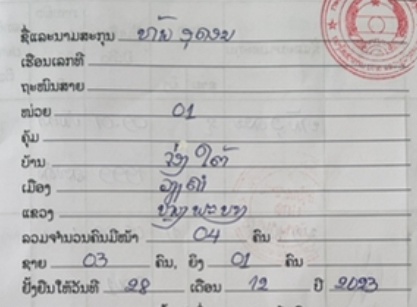 ຊື່ແລະນາມສະກຸນ ທ້າວ ອຸດອນ
ເຮືອນເລກທີ
ຖະໜົນສາຍ
ໜ່ວຍ 01
ຄຸ້ມ
ບ້ານ ໃຕ້
ເມືອງ
ແຂວງ ຫຼວງພະບາງ
ລວມຈຳນວນຄົນມີໜ້າ 04 ຄົນ
ຊາຍ 03 ຄົນ, ຍິງ 01 ຄົນ
ຢັ້ງຢືນໃຫ້ວັນທີ 28 ເດືອນ 12 ປີ 2023